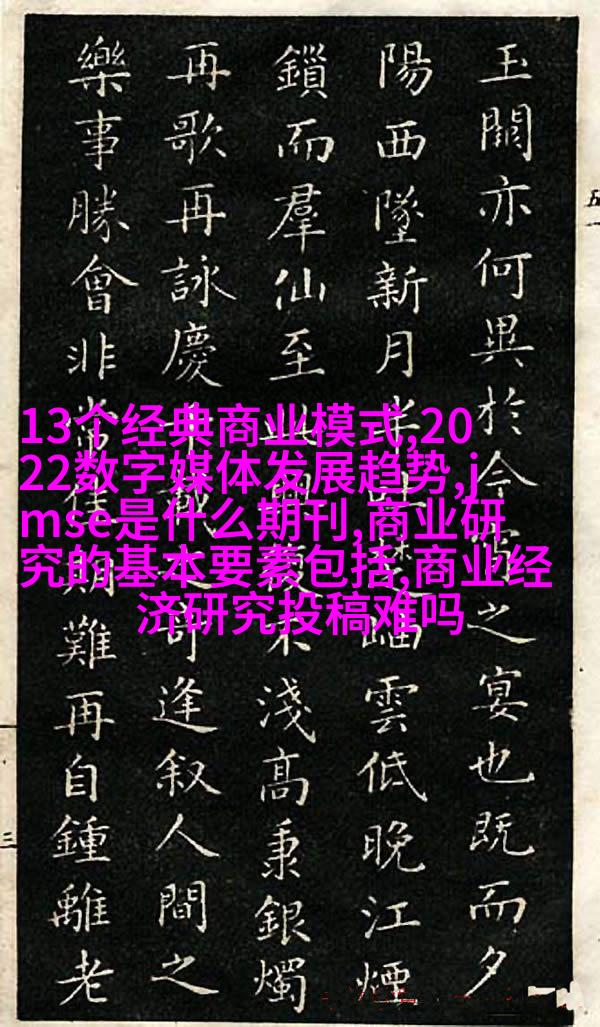 玉闕亦何異於今之宴也既而夕
陽西墜新月半雲低晚江煙
鎖而羣仙至此興復不淺高秉銀燭
再歌再詠慶載逢叙人間之
樂事勝會非常佳期難再自鍾離老
13个经典商业模式,20
22数字媒体发展趋势,j
mse是什么期刊,商业研
究的基本要素包括,商业经
济研究投稿难吗
五
三